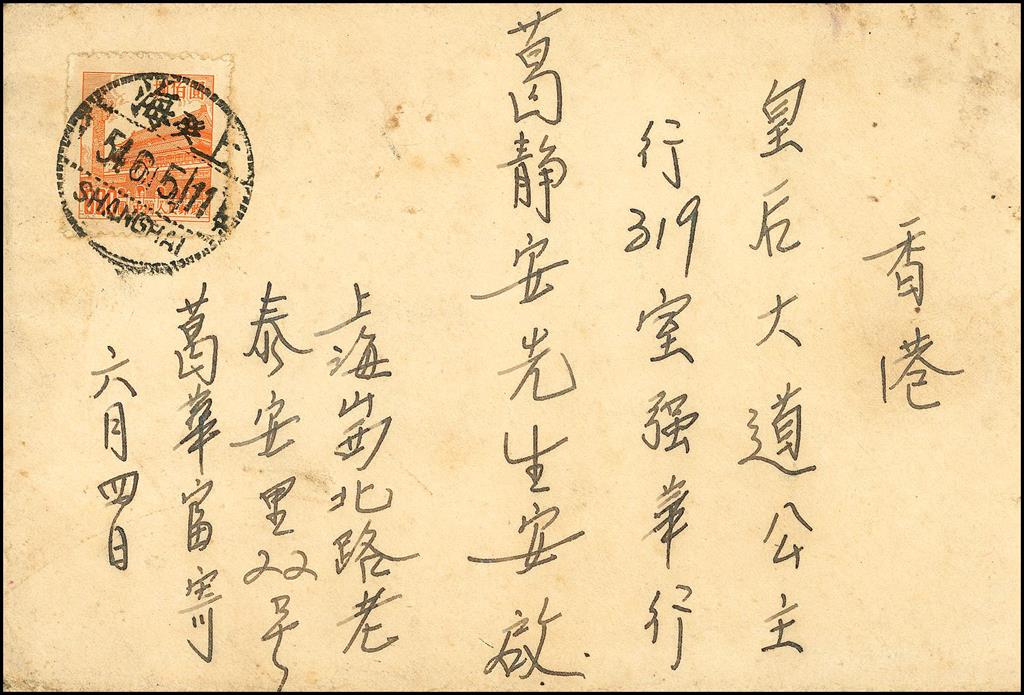 香港
皇后大道公主
行319室强華行
葛静安先生安啟
上海崗北路老
泰安里22号
葛華富寄
六月四日
上海
54.6.5.11
SHANGHAI